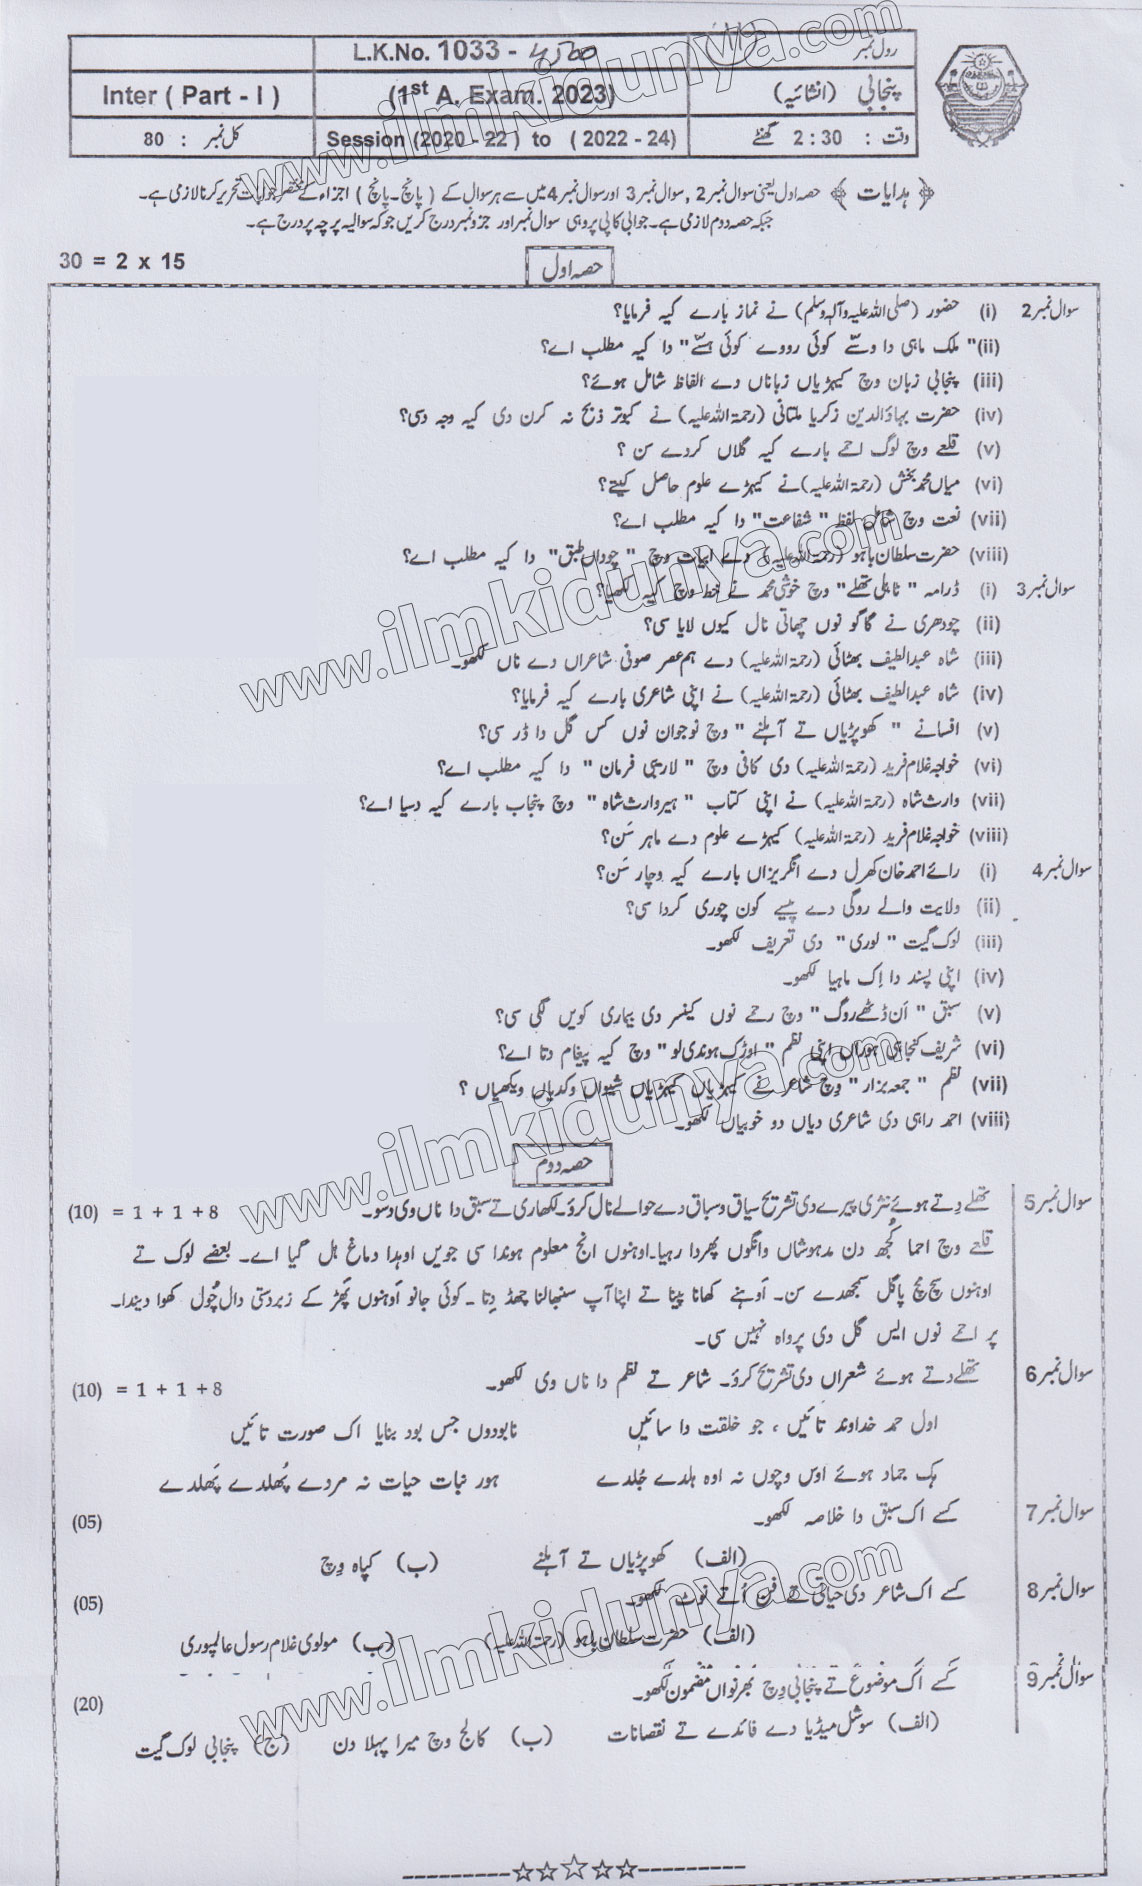 L.K.No. 1033 - 4500 رول نمبر
Inter ( Part - I ) (1st A. Exam. 2023) پنجابی (انشائیہ)
کل نمبر : 80 Session (2020 - 22 ) to ( 2022 - 24) وقت : 2:30 گھنٹے
﴿ ہدایات ﴾ حصہ اول یعنی سوال نمبر 2 , سوال نمبر 3 اور سوال نمبر 4 میں سے ہر سوال کے ( پانچ۔ پانچ ) اجزاء کے مختصر جوابات تحریر کرنا لازمی ہے۔
جبکہ حصہ دوم لازمی ہے۔ جوابی کاپی پر وہی سوال نمبر اور جزو نمبر درج کریں جو کہ سوالیہ پرچہ پر درج ہے۔
30 = 2 x 15
حصہ اول
سوال نمبر 2 (i) حضور (صلی اللہ علیہ وآلہ وسلم) نے نماز بارے کیہ فرمایا؟
(ii) " ملک ماہی دا وسّے کوئی رووے کوئی ہسّے" دا کیہ مطلب اے؟
(iii) پنجابی زبان وچ کیہڑیاں زباناں دے الفاظ شامل ہوئے؟
(iv) حضرت بہاؤالدین زکریا ملتانی (رحمۃ اللہ علیہ) نے کبوتر ذبح نہ کرن دی کیہ وجہ دسی؟
(v) قلعے وچ لوگ احمے بارے کیہ گلاں کردے سن ؟
(vi) میاں محمد بخش (رحمۃ اللہ علیہ) نے کیہڑے علوم حاصل کیتے؟
(vii) نعت وچ شامل لفظ " شفاعت" دا کیہ مطلب اے؟
(viii) حضرت سلطان باہو (رحمۃ اللہ علیہ) دے ابیات وچ " چوداں طبق" دا کیہ مطلب اے؟
سوال نمبر 3 (i) ڈرامہ " ٹاہلی تھلے" وچ خوشی محمد نے خط وچ کیہ لکھیا؟
(ii) چودھری نے گاگو نوں چھاتی نال کیوں لایا سی؟
(iii) شاہ عبدالطیف بھٹائی (رحمۃ اللہ علیہ) دے ہم عصر صوفی شاعراں دے ناں لکھو۔
(iv) شاہ عبدالطیف بھٹائی (رحمۃ اللہ علیہ) نے اپنی شاعری بارے کیہ فرمایا؟
(v) افسانے " کھوپڑیاں تے آہلنے " وچ نوجوان نوں کس گل دا ڈر سی؟
(vi) خواجہ غلام فرید (رحمۃ اللہ علیہ) دی کافی وچ " لاریبی فرمان " دا کیہ مطلب اے؟
(vii) وارث شاہ (رحمۃ اللہ علیہ) نے اپنی کتاب " ہیر وارث شاہ " وچ پنجاب بارے کیہ دسیا اے؟
(viii) خواجہ غلام فرید (رحمۃ اللہ علیہ) کیہڑے علوم دے ماہر سَن؟
سوال نمبر 4 (i) رائے احمد خان کھرل دے انگریزاں بارے کیہ وچار سَن؟
(ii) ولایت والے روگی دے پیسے کون چوری کردا سی؟
(iii) لوک گیت " لوری " دی تعریف لکھو۔
(iv) اپنی پسند دا اِک ماہیا لکھو۔
(v) سبق " اَن ڈٹھے روگ " وچ رحمے نوں کینسر دی بیماری کویں لگی سی؟
(vi) شریف کنجاہی ہوراں اپنی نظم " اوڑک ہوندی لو " وچ کیہ پیغام دتا اے؟
(vii) نظم " جمعہ بزار " وِچ شاعر نے کیہڑیاں کیہڑیاں شیواں وکدیاں ویکھیاں ؟
(viii) احمد راہی دی شاعری دیاں دو خوبیاں لکھو۔
حصہ دوم
سوال نمبر 5 تھلے دِتے ہوئے نثری پیرے دی تشریح سیاق و سباق دے حوالے نال کرؤ۔ لکھاری تے سبق دا ناں وی دسو۔ (10) = 1 + 1 + 8
قلعے وچ احما کُجھ دن مدہوشاں وانگوں پھردا رہیا۔ اوہنوں انج معلوم ہوندا سی جویں اوہدا دماغ ہل گیا اے۔ بعضے لوک تے
اوہنوں سچ مچ پاگل سمجھدے سن۔ اَوہنے کھانا پینا تے اپنا آپ سنبھالنا چھڈ دِتا ۔ کوئی جانو اَوہنوں پھڑ کے زبردستی دال چُول کھوا دیندا۔
پر احمے نوں ایس گل دی پرواہ نہیں سی۔
سوال نمبر 6 تھلے دتے ہوئے شعراں دی تشریح کرؤ۔ شاعر تے نظم دا ناں وی لکھو۔ (10) = 1 + 1 + 8
اول حمد خداوند تائیں ، جو خلقت دا سائیں نابودوں جس بود بنایا اک صورت تائیں
ہک جماد ہوئے اوس وچوں نہ اوہ ہلدے جُلدے ہور نبات حیات نہ مردے پُھلدے پَھلدے
سوال نمبر 7 کسے اک سبق دا خلاصہ لکھو۔ (05)
(الف) کھوپڑیاں تے آہلنے (ب) کپاہ وِچ
سوال نمبر 8 کسے اک شاعر دی حیاتی تے فن اُتے نوٹ لکھو۔ (05)
(الف) حضرت سلطان باہو (رحمۃ اللہ علیہ) (ب) مولوی غلام رسول عالمپوری
سوال نمبر 9 کسے اک موضوع تے پنجابی وِچ بھرنواں مضمون لکھو۔ (20)
(الف) سوشل میڈیا دے فائدے تے نقصانات (ب) کالج وچ میرا پہلا دن (ج) پنجابی لوک گیت
www.ilmkidunya.com
www.ilmkidunya.com
www.ilmkidunya.com
www.ilmkidunya.com